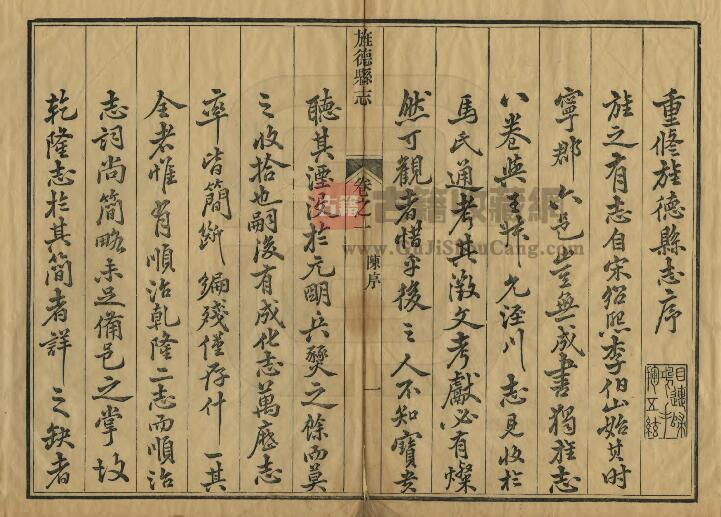 重修旌德縣志序
旌之有志自宋紹熙李伯山始其時
寧郡六邑豈無成書獨旌志
八卷與王栐先涇川志見收於
馬氏通考其徵文考獻必有燦
然可觀者惜乎後之人不知寶貴
旌德縣志
卷之一
陳序
一
聽其湮沒於元明兵燹之餘而莫
之收拾也嗣後有成化志萬曆志
率皆簡斷編殘僅存什一其
全者惟有順治乾隆二志而順治
志詞尚簡略未足備邑之掌故
乾隆志於其簡者詳之缺者
古籍
古籍收藏網
www.GuJiShouCang.com